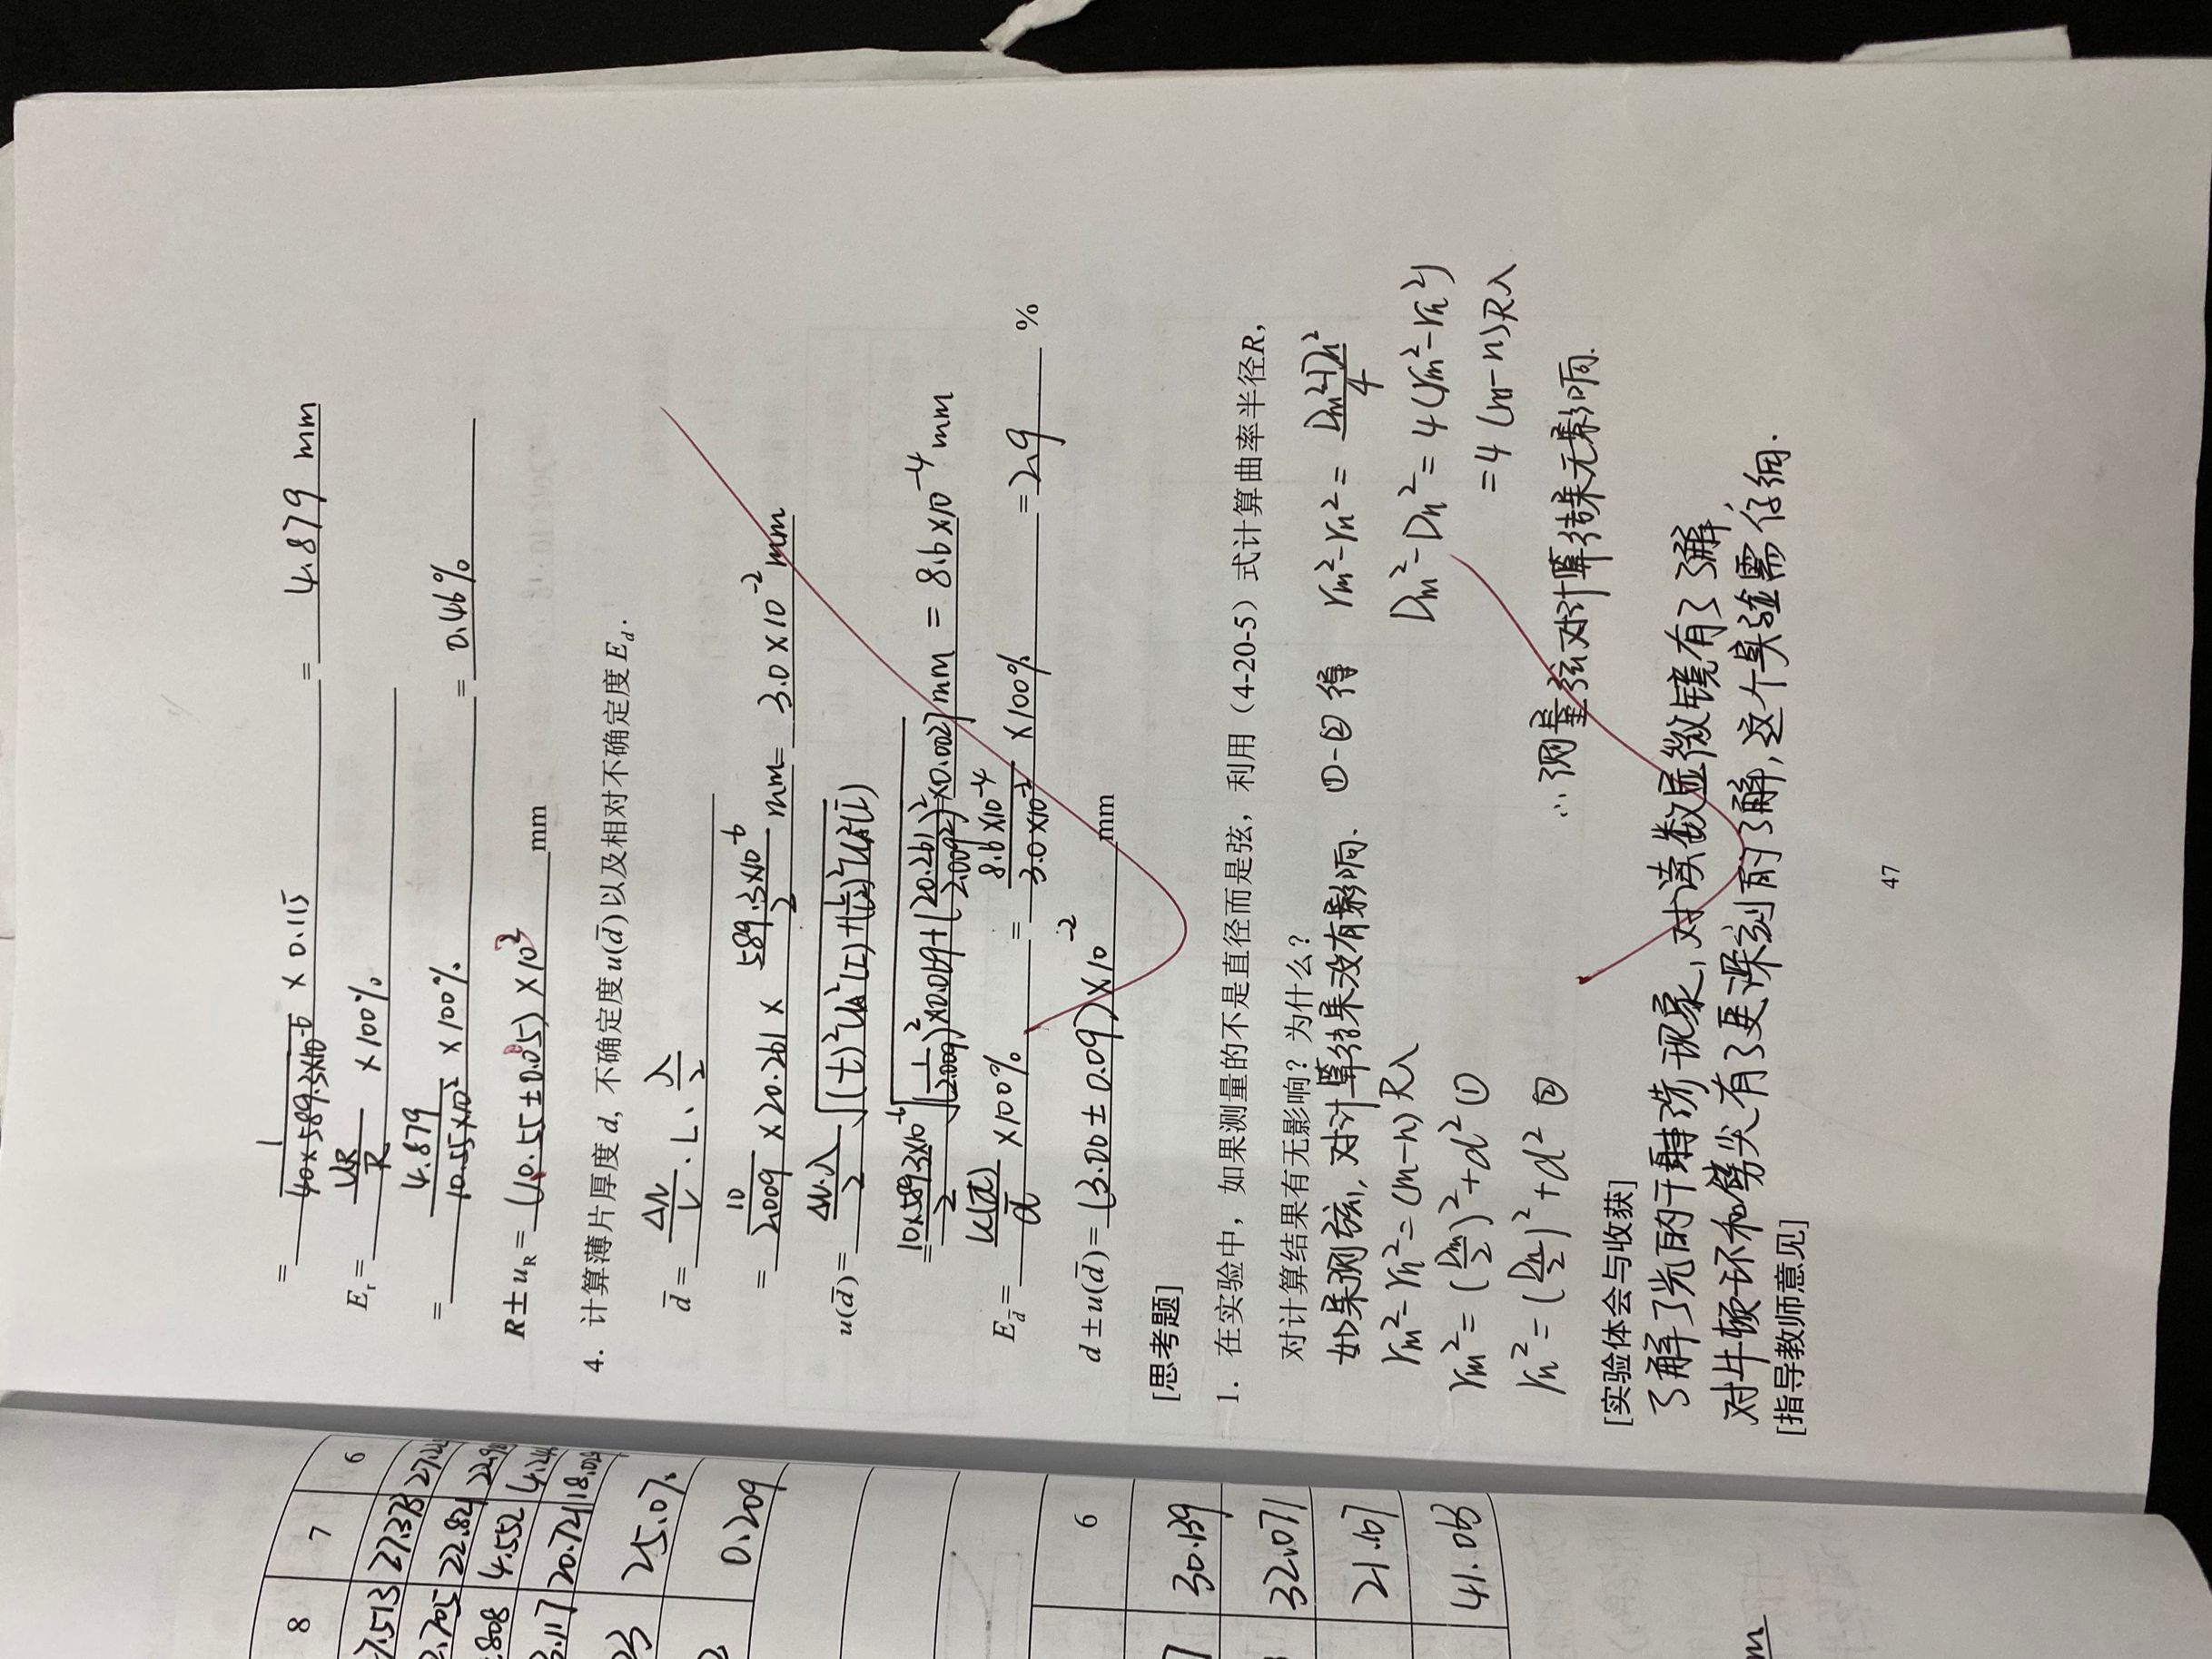 8 7 6
7.513 27.373 27.2
2.705 22.821 22.9
.808 4.552 4.24
3.117 20.721 18.02
23 25.07
2 0.209
6
7 30.139
32.071
21.107
41.063
m
= 1/(40×589.3×10⁻⁶) × 0.115 = 4.879 mm
Eᵣ= UR/R ×100%
= 4.879/(10.55×10²) ×100% = 0.46%
R±u_R= (10.55±0.05)×10² mm
4. 计算薄片厚度 d, 不确定度u(d̄)以及相对不确定度E_d.
d̄= ΔN/L · L · λ/2
= 10/2.009 ×20.261× (589.3×10⁻⁶)/2 mm= 3.0×10⁻²mm
u(d̄)= (ΔN·λ)/2 √((1/L)²
= (10×589.3×10⁻⁶)/2 √((1/2.009)²×0.069+(20.261/2.009²)²×0.002) mm = 8.6×10⁻⁴mm
E_d̄= u(d̄)/d̄ ×100% = (8.6×10⁻⁴)/(3.0×10⁻²) ×100% =2.9 %
d±u(d̄)= (3.00±0.09)×10⁻² mm
[思考题]
1. 在实验中，如果测量的不是直径而是弦，利用（4-20-5）式计算曲率半径R，
对计算结果有无影响？为什么？
如果测弦，对计算结果没有影响.
rm²-rn²=(m-n)Rλ
rm²=(Dm/2)²+d² ①
rn²=(Dn/2)²+d² ②
①-② 得 rm²-rn²= (Dm²-Dn²)/4
Dm²-Dn²=4(rm²-rn²)
=4(m-n)Rλ
∴测量弦对计算结果无影响.
[实验体会与收获]
了解了光的干涉现象，对读数显微镜有了了解，
对牛顿环和劈尖有了更深刻的了解，这个实验需仔细.
[指导教师意见]
47